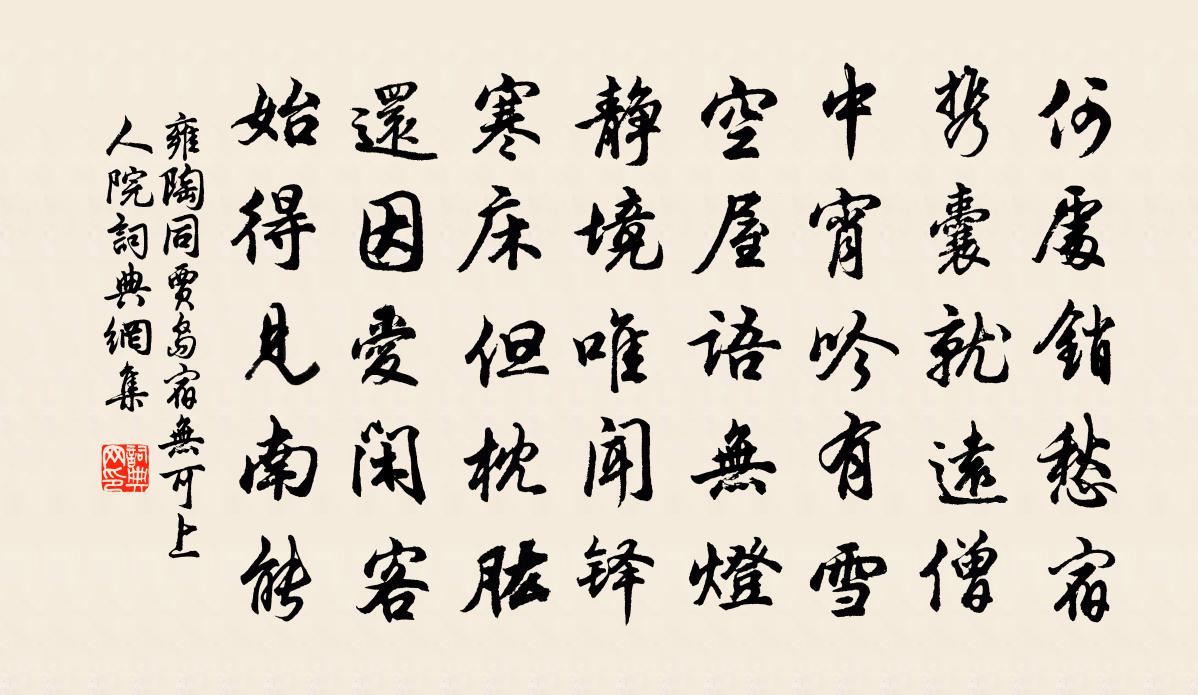 何處銷愁宿
携囊就遠僧
中宵吟有雪
空屋語無燈
靜境唯闻铎
寒床但枕肱
還因愛閑客
始得見南能
雍陶同賈島宿無可上
人院詞典網集
詞典网印